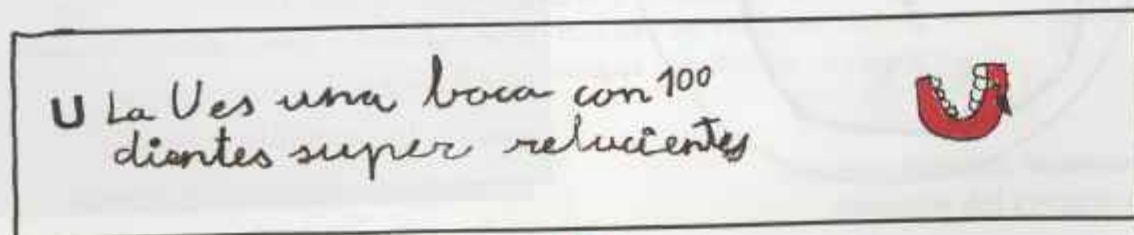 U La U es una boca con 100
dientes super relucientes